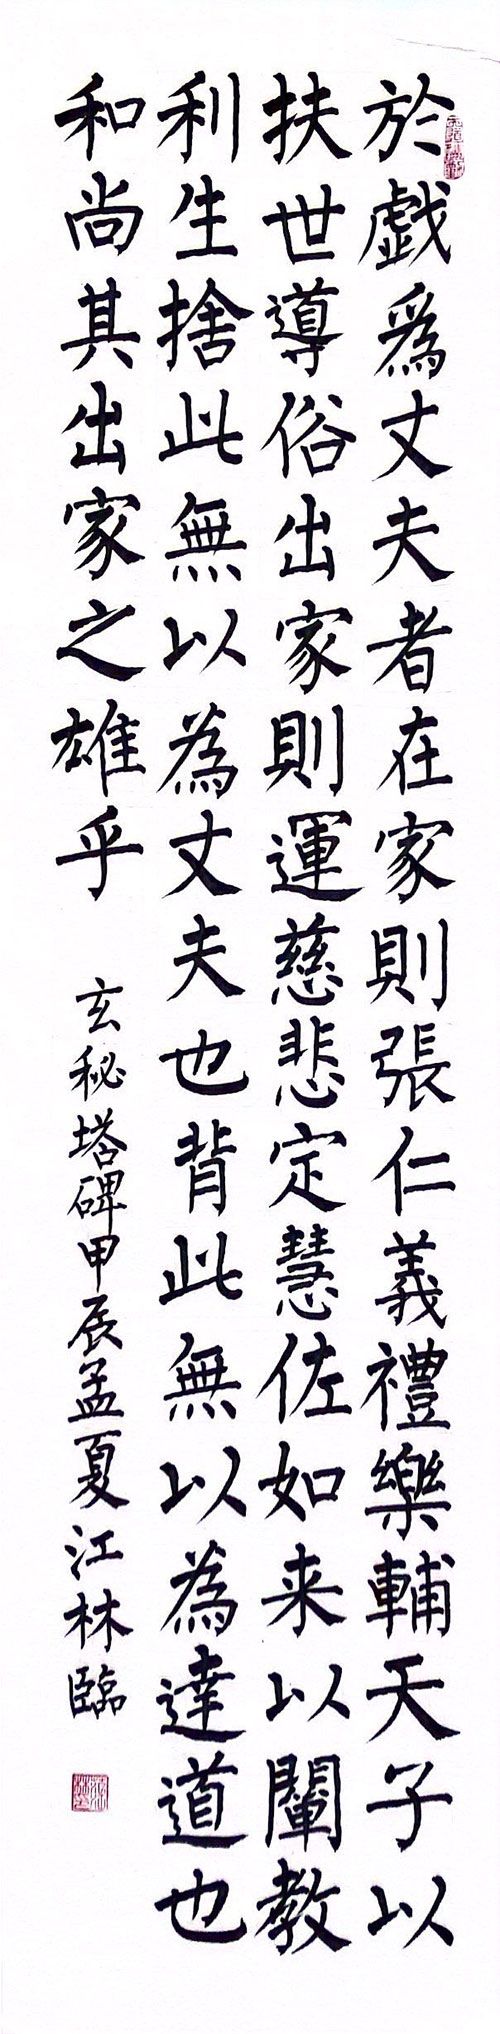 於戲爲丈夫者在家則張仁義禮樂輔天子以
扶世導俗出家則運慈悲定慧佐如来以闡教
利生捨此無以為丈夫也背此無以為達道也
和尚其出家之雄乎
玄秘塔碑甲辰孟夏江林臨